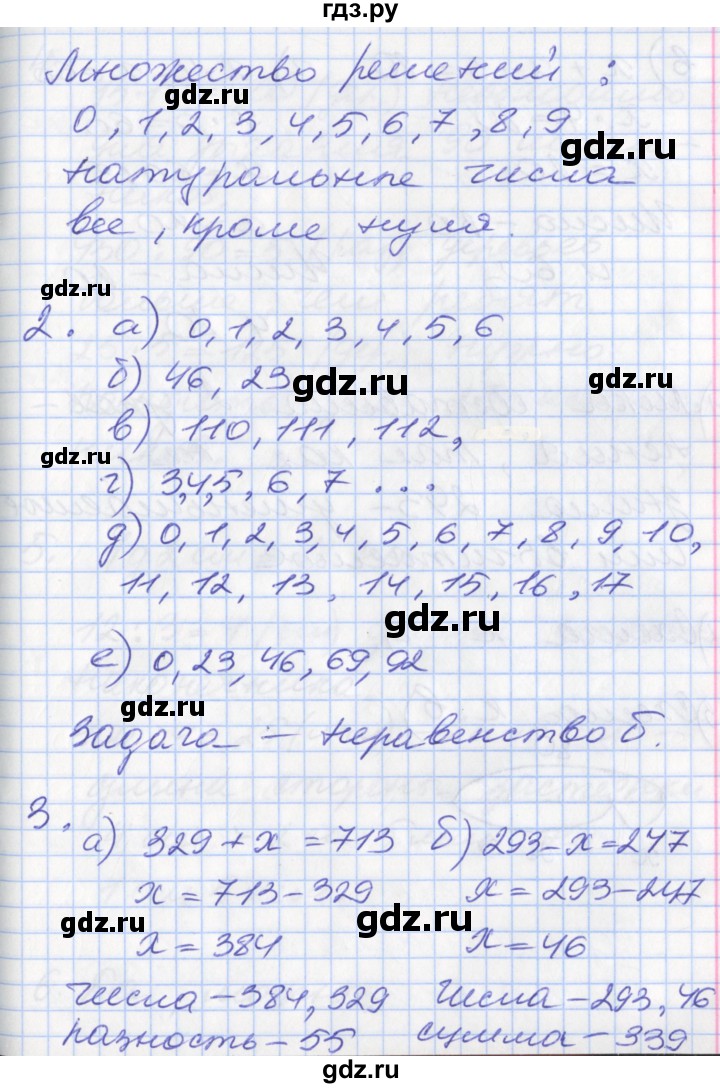 гдз.ру
Множество решений :
gdz.ru
0, 1, 2, 3, 4, 5, 6, 7, 8, 9
gdz.ru
натуральные числа
все, кроме нуля.
gdz.ru
2. а) 0, 1, 2, 3, 4, 5, 6
б) 46, 23
gdz.ru
gdz.ru
в) 110, 111, 112,
gdz.ru
г) 3,4,5, 6, 7 ...
д) 0, 1, 2, 3, 4, 5, 6, 7, 8, 9, 10,
11, 12, 13, 14, 15, 16, 17
gdz.ru
е) 0, 23, 46, 69, 92
gdz.ru
Задача – неравенство б.
3.
а) 329 + x = 713 б) 293 – x = 247
x = 713 – 329 x = 293 – 247
gdz.ru
gdz.ru
x = 384 x = 46
числа – 384, 329 числа – 293, 46
разность – 55 сумма – 339